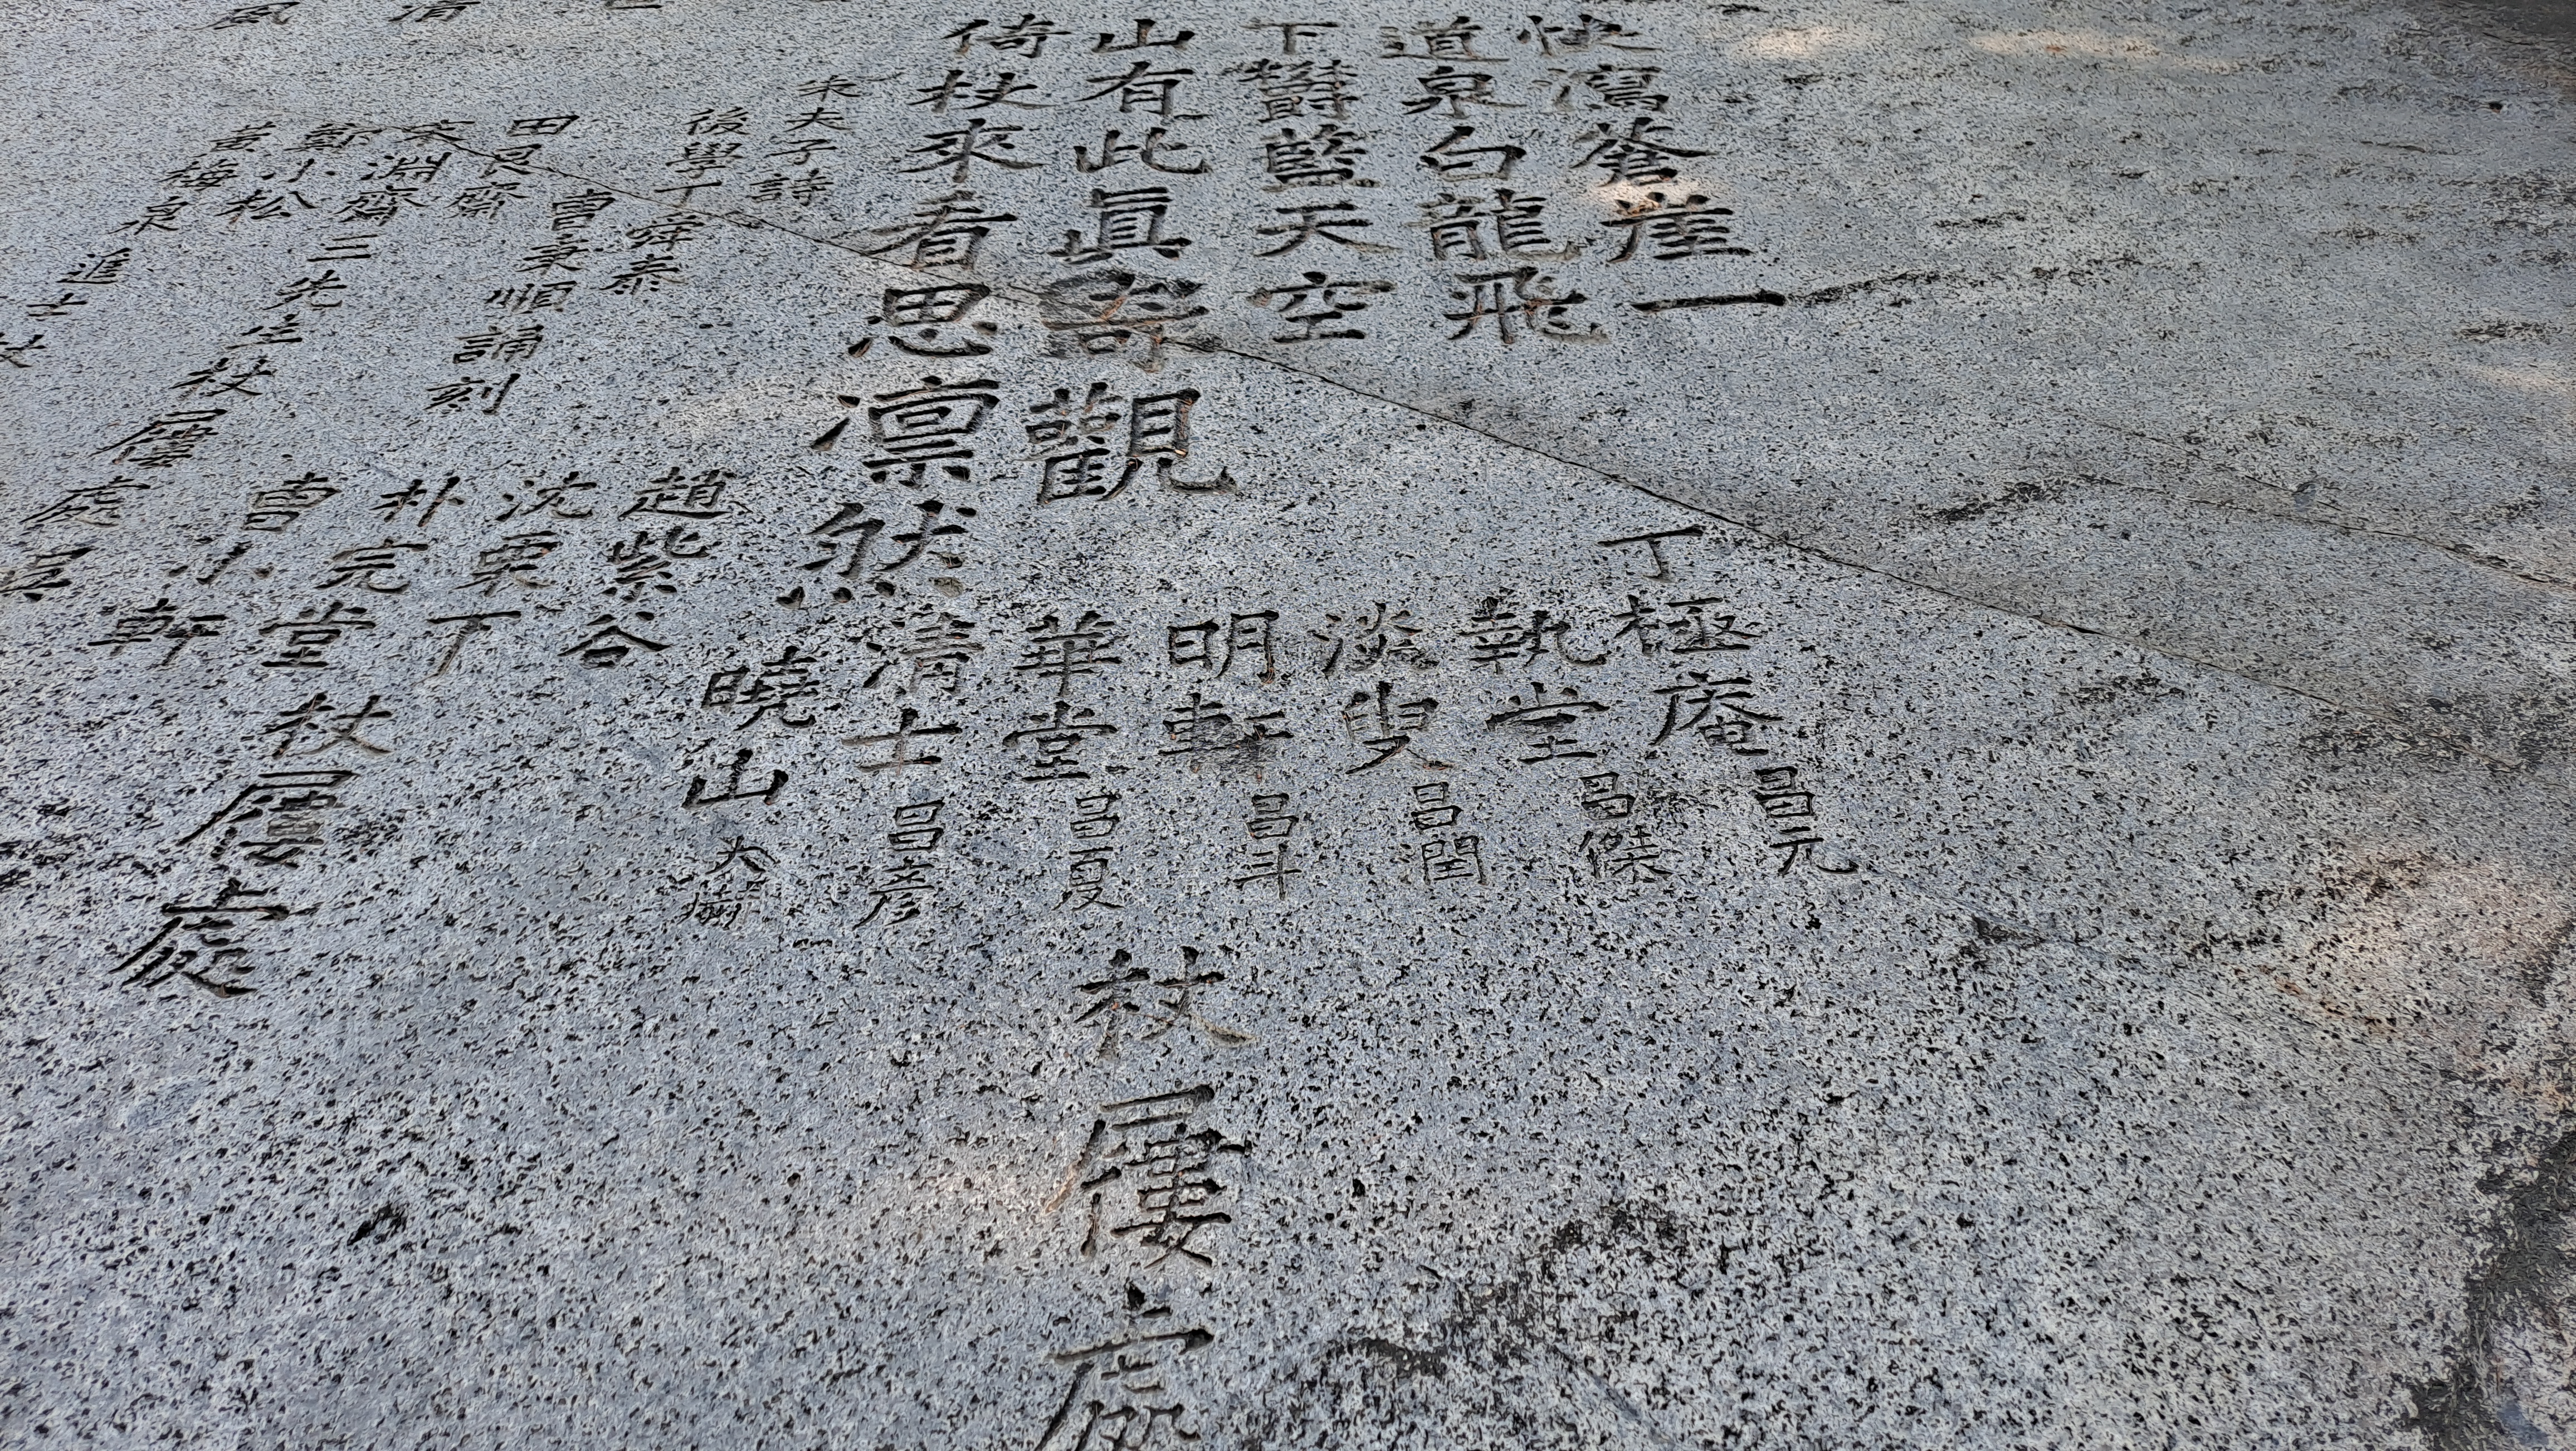 快瀉蒼崖一
道泉白龍飛
下鬱藍天空
山有此眞奇觀
倚杖來看思凛然
朱夫子詩
後學丁舜泰
曺順誦刻
田艮齋
宋淵齋三先生杖屨處
鄭小松
黃梅泉
進士
丁極庵昌元
執堂昌傑
淡叟昌潤
明軒昌斗
華堂昌夏
清士昌彦
曉山大樹
杖屨處
趙紫谷
沈栗
朴完堂杖屨處
曺小軒